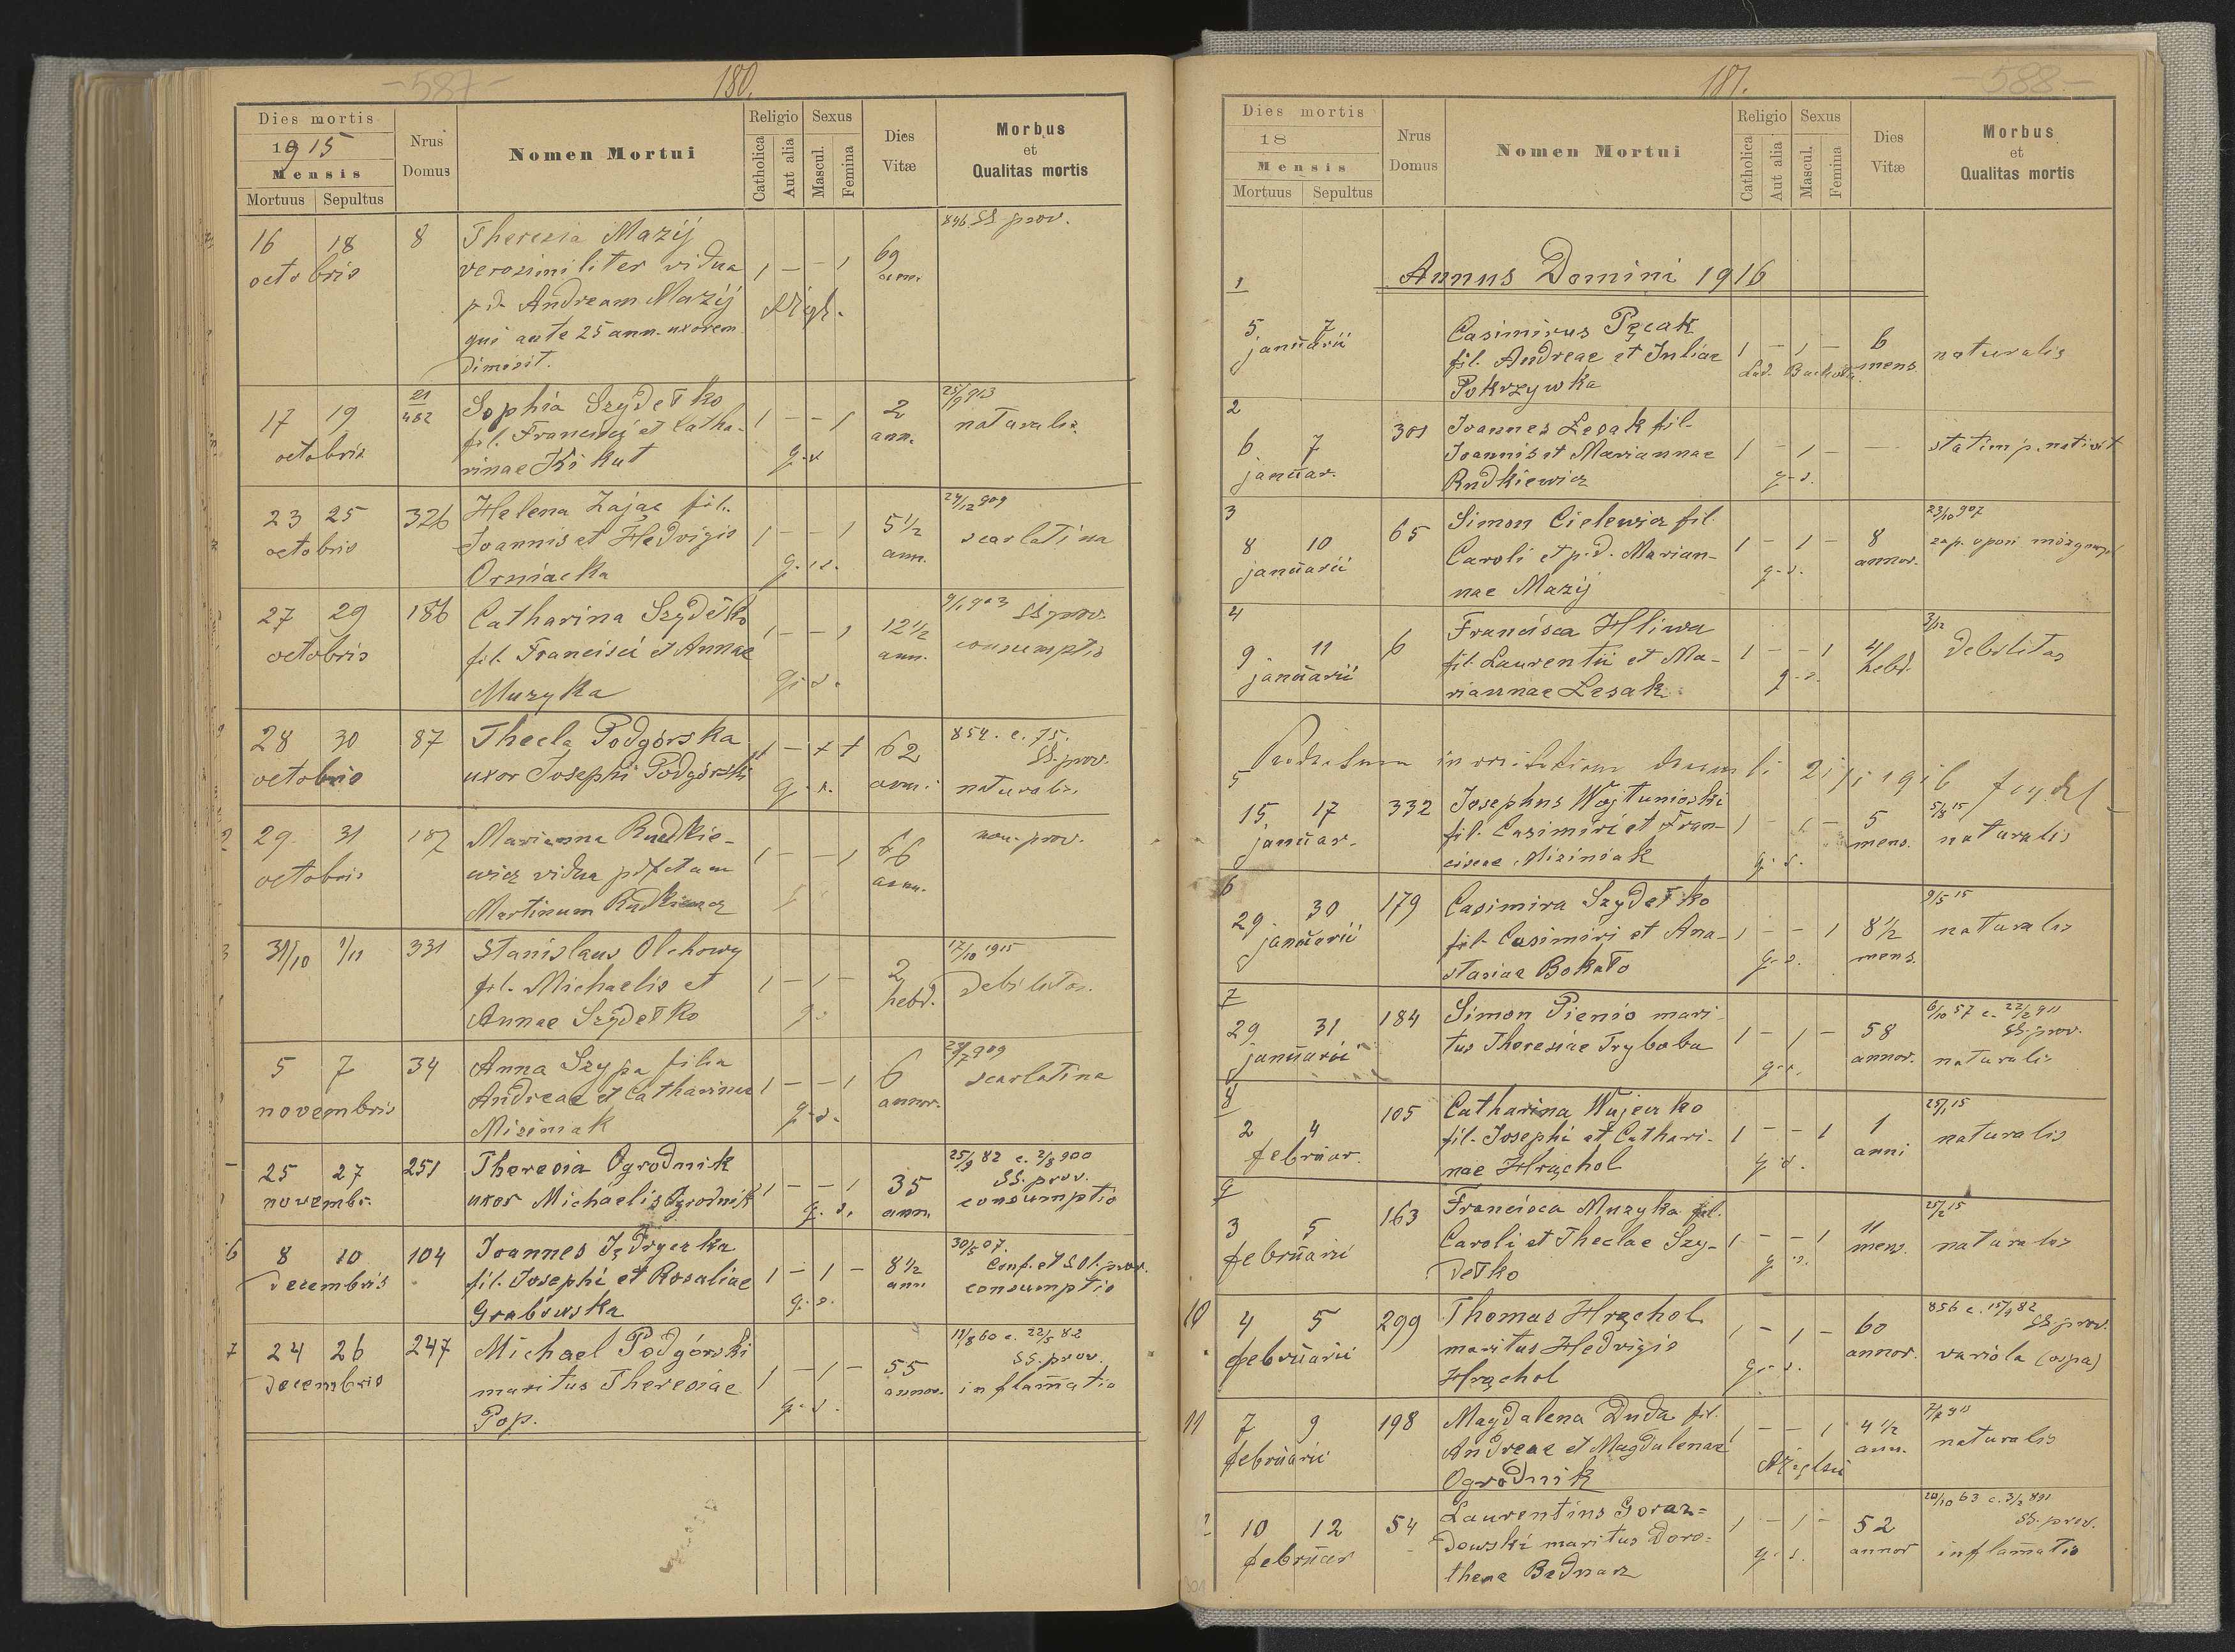 -587-
180.
Dies mortis
1915
Mensis
Mortuus Sepultus
Nrus Domus
Nomen Mortui
Religio
Catholica
Aut alia
Sexus
Mascul.
Femina
Dies Vitæ
Morbus
et
Qualitas mortis
16 18 8 Theresia Mazij 846 SS prov.
octobris verosimiliter vidua 1 - - 1 69 ann.
p. d. Andream Mazij
qui ante 25 ann. uxorem
dimisit.
17 19 21/482 Sophia Szydełko 1 - - 1 2 25/9 913
octobris fil. Francisci et Catha- ann. naturalis
rinae Kikut g. s.
23 25 326 Helena Zając fil. 24/12 909
octobris Joannis et Hedvigis 1 - - 1 5 1/2 scarlatina
Orniacka g. s. ann.
27 29 186 Catharina Szydełko 1 - - 1 12 1/2 9/1 903 SS prov.
octobris fil. Francisci et Annae ann. consumptio
Muzyka g. s.
28 30 87 Thecla Podgórska 1 - 62 854. c. 75. SS. prov.
octobris uxor Josephi Podgórski g. s. anni naturalis
29 31 187 Marianna Rudkie- 1 - - 1 66 non prov.
octobris wicz vidua p. dfctum ann.
Martinum Rudkiewicz
31/10 1/11 331 Stanislaus Olchowy 17/10 1915
fil. Michaelis et 1 - 1 - 2 hebd. debilitas.
Annae Szydełko g. s.
5 7 34 Anna Szypa filia 6 909
novembris Andreae et Catharinae 1 - - 1 annor. scarlatina
Misiniak g. s.
25 27 251 Theresia Ogrodnik 25/9 82 c. 2/8 900
novembr. uxor Michaelis Ogrodnik 1 - - 1 35 SS. prov.
g. s. ann. consumptio
6 8 10 104 Joannes Jędryczka 30/5 07.
decembris fil. Josephi et Rosaliae 1 - 1 - 8 1/2 Conf. et S Ol. prov.
Grabowska g. s. ann consumptio
7 24 26 247 Michael Podgórski 60 c. 22/5 82
decembris maritus Theresiae 1 - 1 - 55 SS. prov.
Pop. g. s. annor. inflam̄atio
-588-
181.
Dies mortis
18
Mensis
Mortuus Sepultus
Nrus Domus
Nomen Mortui
Religio
Catholica
Aut alia
Sexus
Mascul.
Femina
Dies Vitæ
Morbus
et
Qualitas mortis
Annus Domini 1916
1
5 7 Casimirus Pęcak 6
januarii fil. Andreae et Juliae 1 - 1 - mens. naturalis
Pokrzywka
2
6 7 301 Joannes Lesak fil.
januar. Joannis et Mariannae 1 - 1 - - statim p. nativit
Rudkiewicz g. s.
3
8 10 65 Simon Cielewicz fil. 23/10 907
januarii Caroli et p. d. Marian- 1 - 1 - 8 zap. opon mózgowych
nae Mazij g. s. annor.
4
9 11 6 Francisca Hliwa 3/12
januarii fil. Laurentii et Ma- 1 - - 1 4 hebd. debilitas
riannae Lesak g. s.
1916
5
15 17 332 Josephus Wojtunioski 5 5/8 15
januar. fil. Casimiri et Fran- 1 - 1 - mens. naturalis
ciscae Misiniak g. s.
6
29 30 179 Casimira Szydełko 9/5 15
januarii fil. Casimiri et Ana- 1 - - 1 8 1/2 naturalis
stasiae Bokało g. s. mens.
7
29 31 184 Simon Pienio mari- 6/10 57 c. 22/2 911
januarii tus Theresiae Tryboba 1 - 1 - 58 SS. prov.
g. s. annor. naturalis
8
2 4 105 Catharina Wujeczko 15
februar. fil. Josephi et Cathari- 1 - - 1 1 naturalis
nae Hrąchol g. s. anni
9
3 5 163 Francisca Muzyka fil. 25/2 15
februarii Caroli et Theclae Szy- 1 - - 1 11 mens. naturalis
dełko g. s.
10 4 5 299 Thomas Hrąchol 60 856 c. 15/9 82 SS. prov.
februarii maritus Hedvigis 1 - 1 - annor. variola (ospa)
Hrąchol g. s.
11 7 9 198 Magdalena Duda fil. 1 - - 1 4 1/2
februarii Andreae et Magdalenae ann. naturalis
Ogrodnik
10 12 54 Laurentius Goraz= 20/10 63 c. 3/2 891
februar dowski maritus Doro= 1 - 1 - 52 SS. prov.
theae Bednarz g. s. annor inflam̄atio